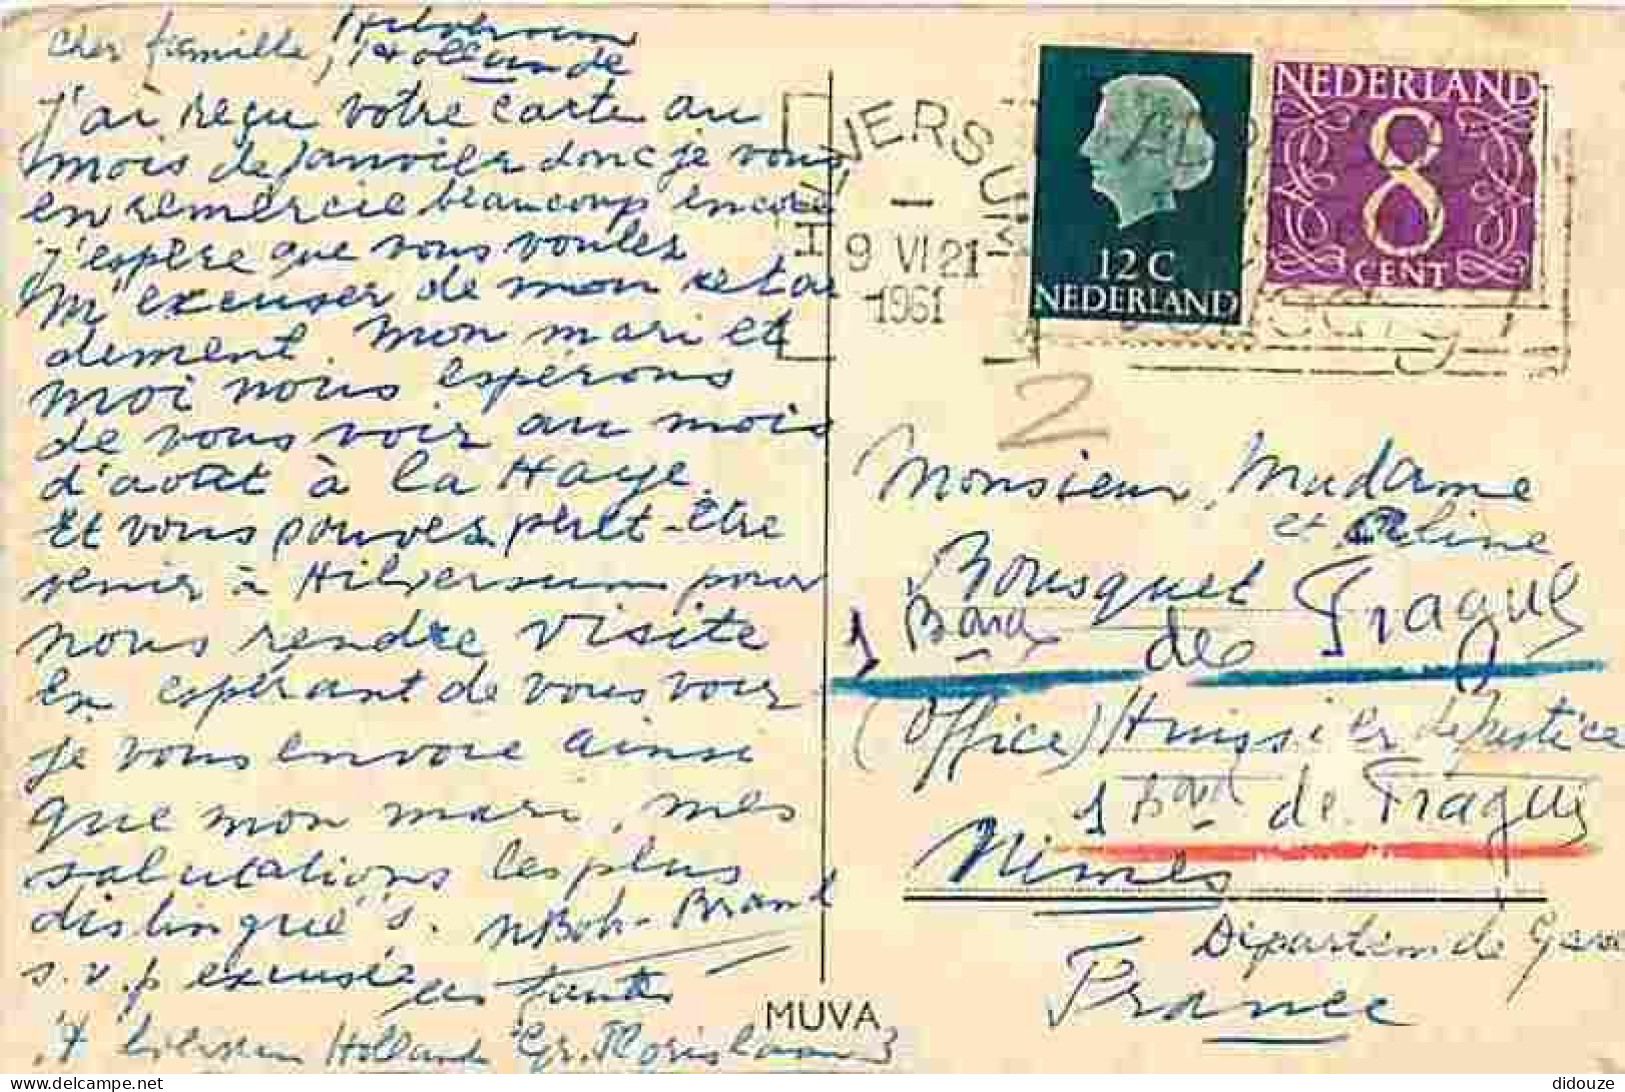 cher famille, Hilversum
Hollande
J'ai reçu votre carte au
mois de Janvier donc je vous
en remercie beaucoup encore
j'espère que vous voulez
m'excuser de mon retar
dement. Mon mari et
moi nous espérons
de vous voir au mois
d'août à la Haye.
Et vous pouvez peut-être
venir à Hilversum pour
nous rendre visite
en espérant de vous voir
je vous envoie ainsi
que mon mari, mes
salutations les plus
distingué"s. NBoh-Brand
s.v.p excusée
les fautes
Holland Gr. Florislaan 3
MUVA
HILVERSUM
9 VI 21
1961
12 C
NEDERLAND
NEDERLAND
8
CENT
2
Monsieur, Madame
et Céline
Bousquet
1 Bard de Prague
(Office) Huissier de Justice
1 Bard de Prague
Nimes
Départem de Gard
France
didouze